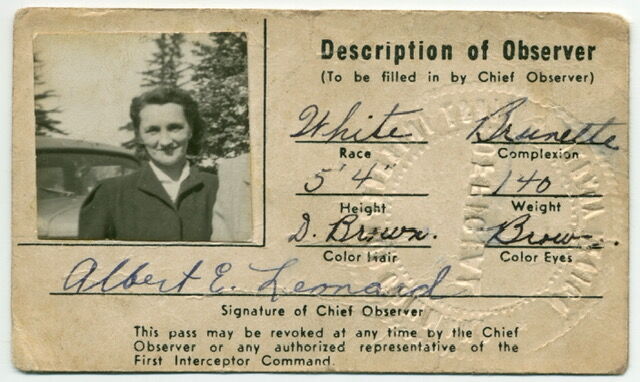 Description of Observer
(To be filled in by Chief Observer)
White Brunette
Race Complexion
5' 4" 140
Height Weight
D. Brown. Brown.
Color Hair Color Eyes
Albert E. Leonard
Signature of Chief Observer
This pass may be revoked at any time by the Chief
Observer or any authorized representative of the
First Interceptor Command.